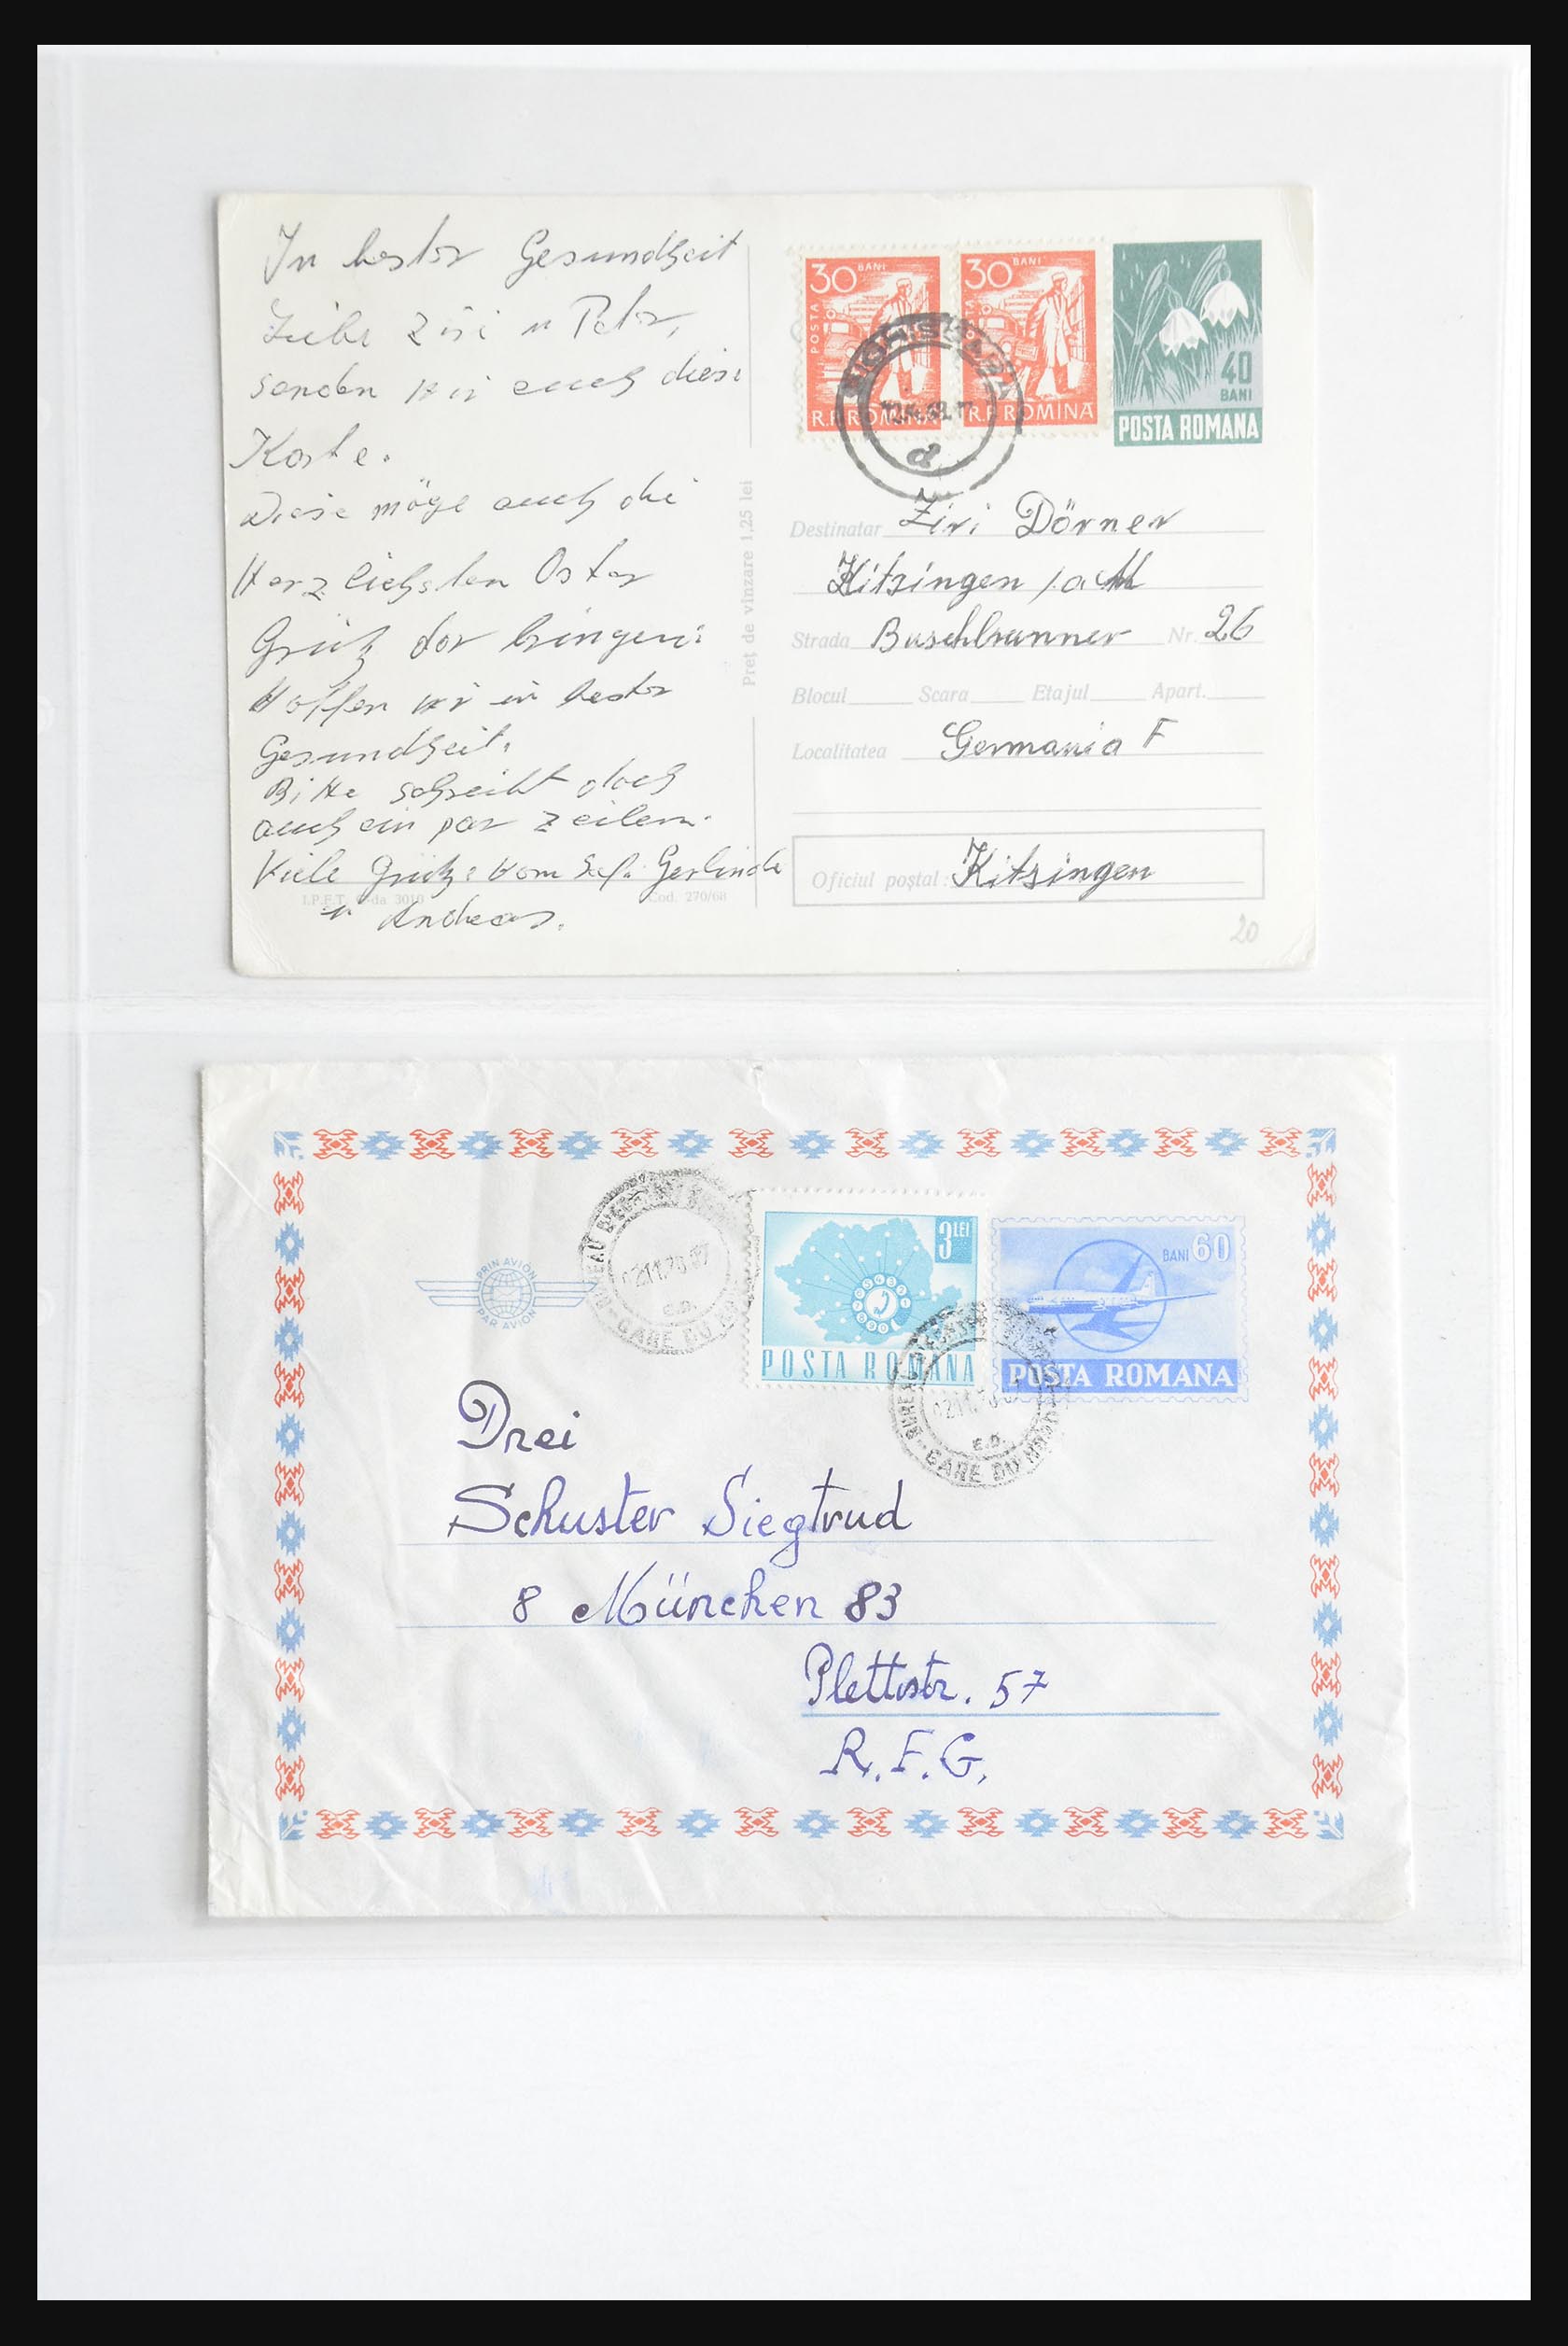 In bester Gesundheit
Liebe Ziri u Peter,
senden wir euch diese
Karte.
Diese möge auch die
Herzlichsten Oster
Grüß dar bringen:
Hoffen wir in bester
Gesundheit.
Bitte schreibt doch
auch ein par Zeilen.
Viele Grüße vom Gerlinde
u Andreas.
I.P.F.T. 3010
Cod. 270/68
Preț de vînzare 1,25 lei
30 BANI
POSTA
R.P.ROMINA
30 BANI
R.P.ROMINA
40
BANI
POSTA ROMANA
SIGHISOARA
d
Destinatar Ziri Dörner
Kitzingen /a M
Strada Buschbrunner Nr. 26
Blocul Scara Etajul Apart.
Localitatea Germania F
Oficiul poștal: Kitzingen
20
PRIN AVION
PAR AVION
02.11.70.07
E.D.
GARE DU NORD
3 LEI
6 5 4 3 2 1
7 8 9 0
POSTA ROMANA
BANI 60
POSTA ROMANA
E.D.
GARE DU NORD
Drei
Schuster Siegtrud
8 München 83
Plettstr. 57
R.F.G.